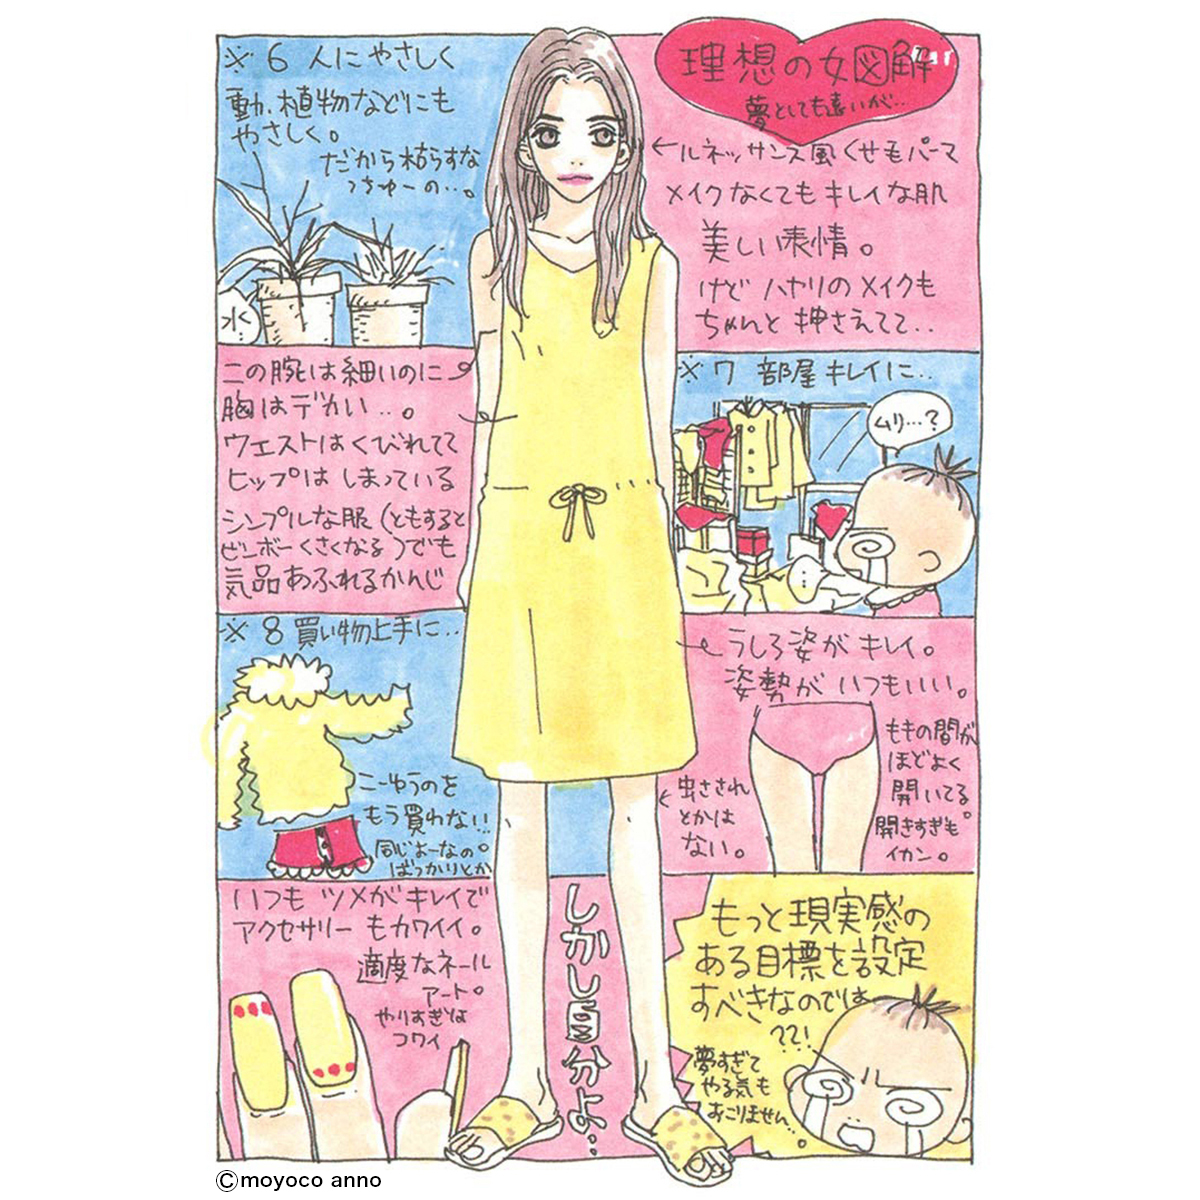 理想の女図解
夢としても遠いが…
←ルネッサンス風くせ毛パーマ
メイクなくてもキレイな肌
美しい表情。
けど ハヤリのメイクも
ちゃんと 押さえてて‥
※6 人にやさしく
動、植物などにも
やさしく。
だから枯らすな
っちゅーの…。
水
この腕は細いのに
胸はデカい…。
ウエストはくびれてて
ヒップは しまっている
シンプルな服(ともすると
ビンボーくさくなる)でも
気品あふれるかんじ
※7 部屋キレイに‥
ムリ…?
※8 買い物上手に‥
こーゆうのを
もう買わない!!
同じよーなの。
ばっかりとか
うしろ姿がキレイ。
姿勢が いつもいい。
ももの間が
ほどよく
開いてる。
開きすぎも
イカン。
虫さされ
とかは
ない。
いつも ツメがキレイで
アクセサリーもカワイイ。
適度なネール
アート。
やりすぎは
コワイ
しかし自分よ…
もっと現実感の
ある目標を設定
すべきなのでは
??!
夢すぎて
やる気も
おこりません…。
©moyoco anno